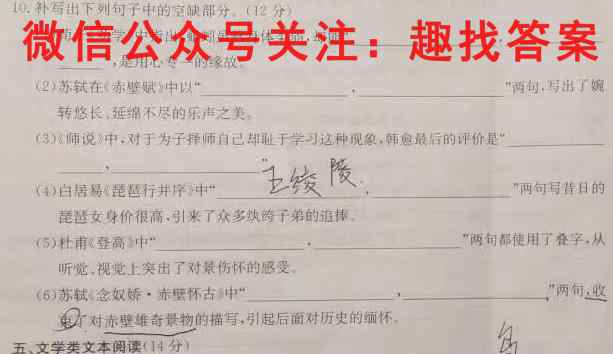 10.补写出下列句子中的空缺部分。(12分)
微信公众号关注：趣找答案
，是用心专一的缘故。
(2)苏轼在《赤壁赋》中以“ ， ”两句,写出了婉
转悠长、延绵不尽的乐声之美。
(3)《师说》中,对于为子择师自己却耻于学习这种现象,韩愈最后的评价是“
， ”
王绫陵
(4)白居易《琵琶行并序》中“ ， ”两句写昔日的
琵琶女身价很高,引来了众多纨绔子弟的追捧。
(5)杜甫《登高》中“ ， ”两句都使用了叠字,从
听觉、视觉上突出了对景伤怀的感受。
(6)苏轼《念奴娇·赤壁怀古》中“ ， ”两句,收
束了对赤壁雄奇景物的描写,引起后面对历史的缅怀。
五、文学类文本阅读(14分)